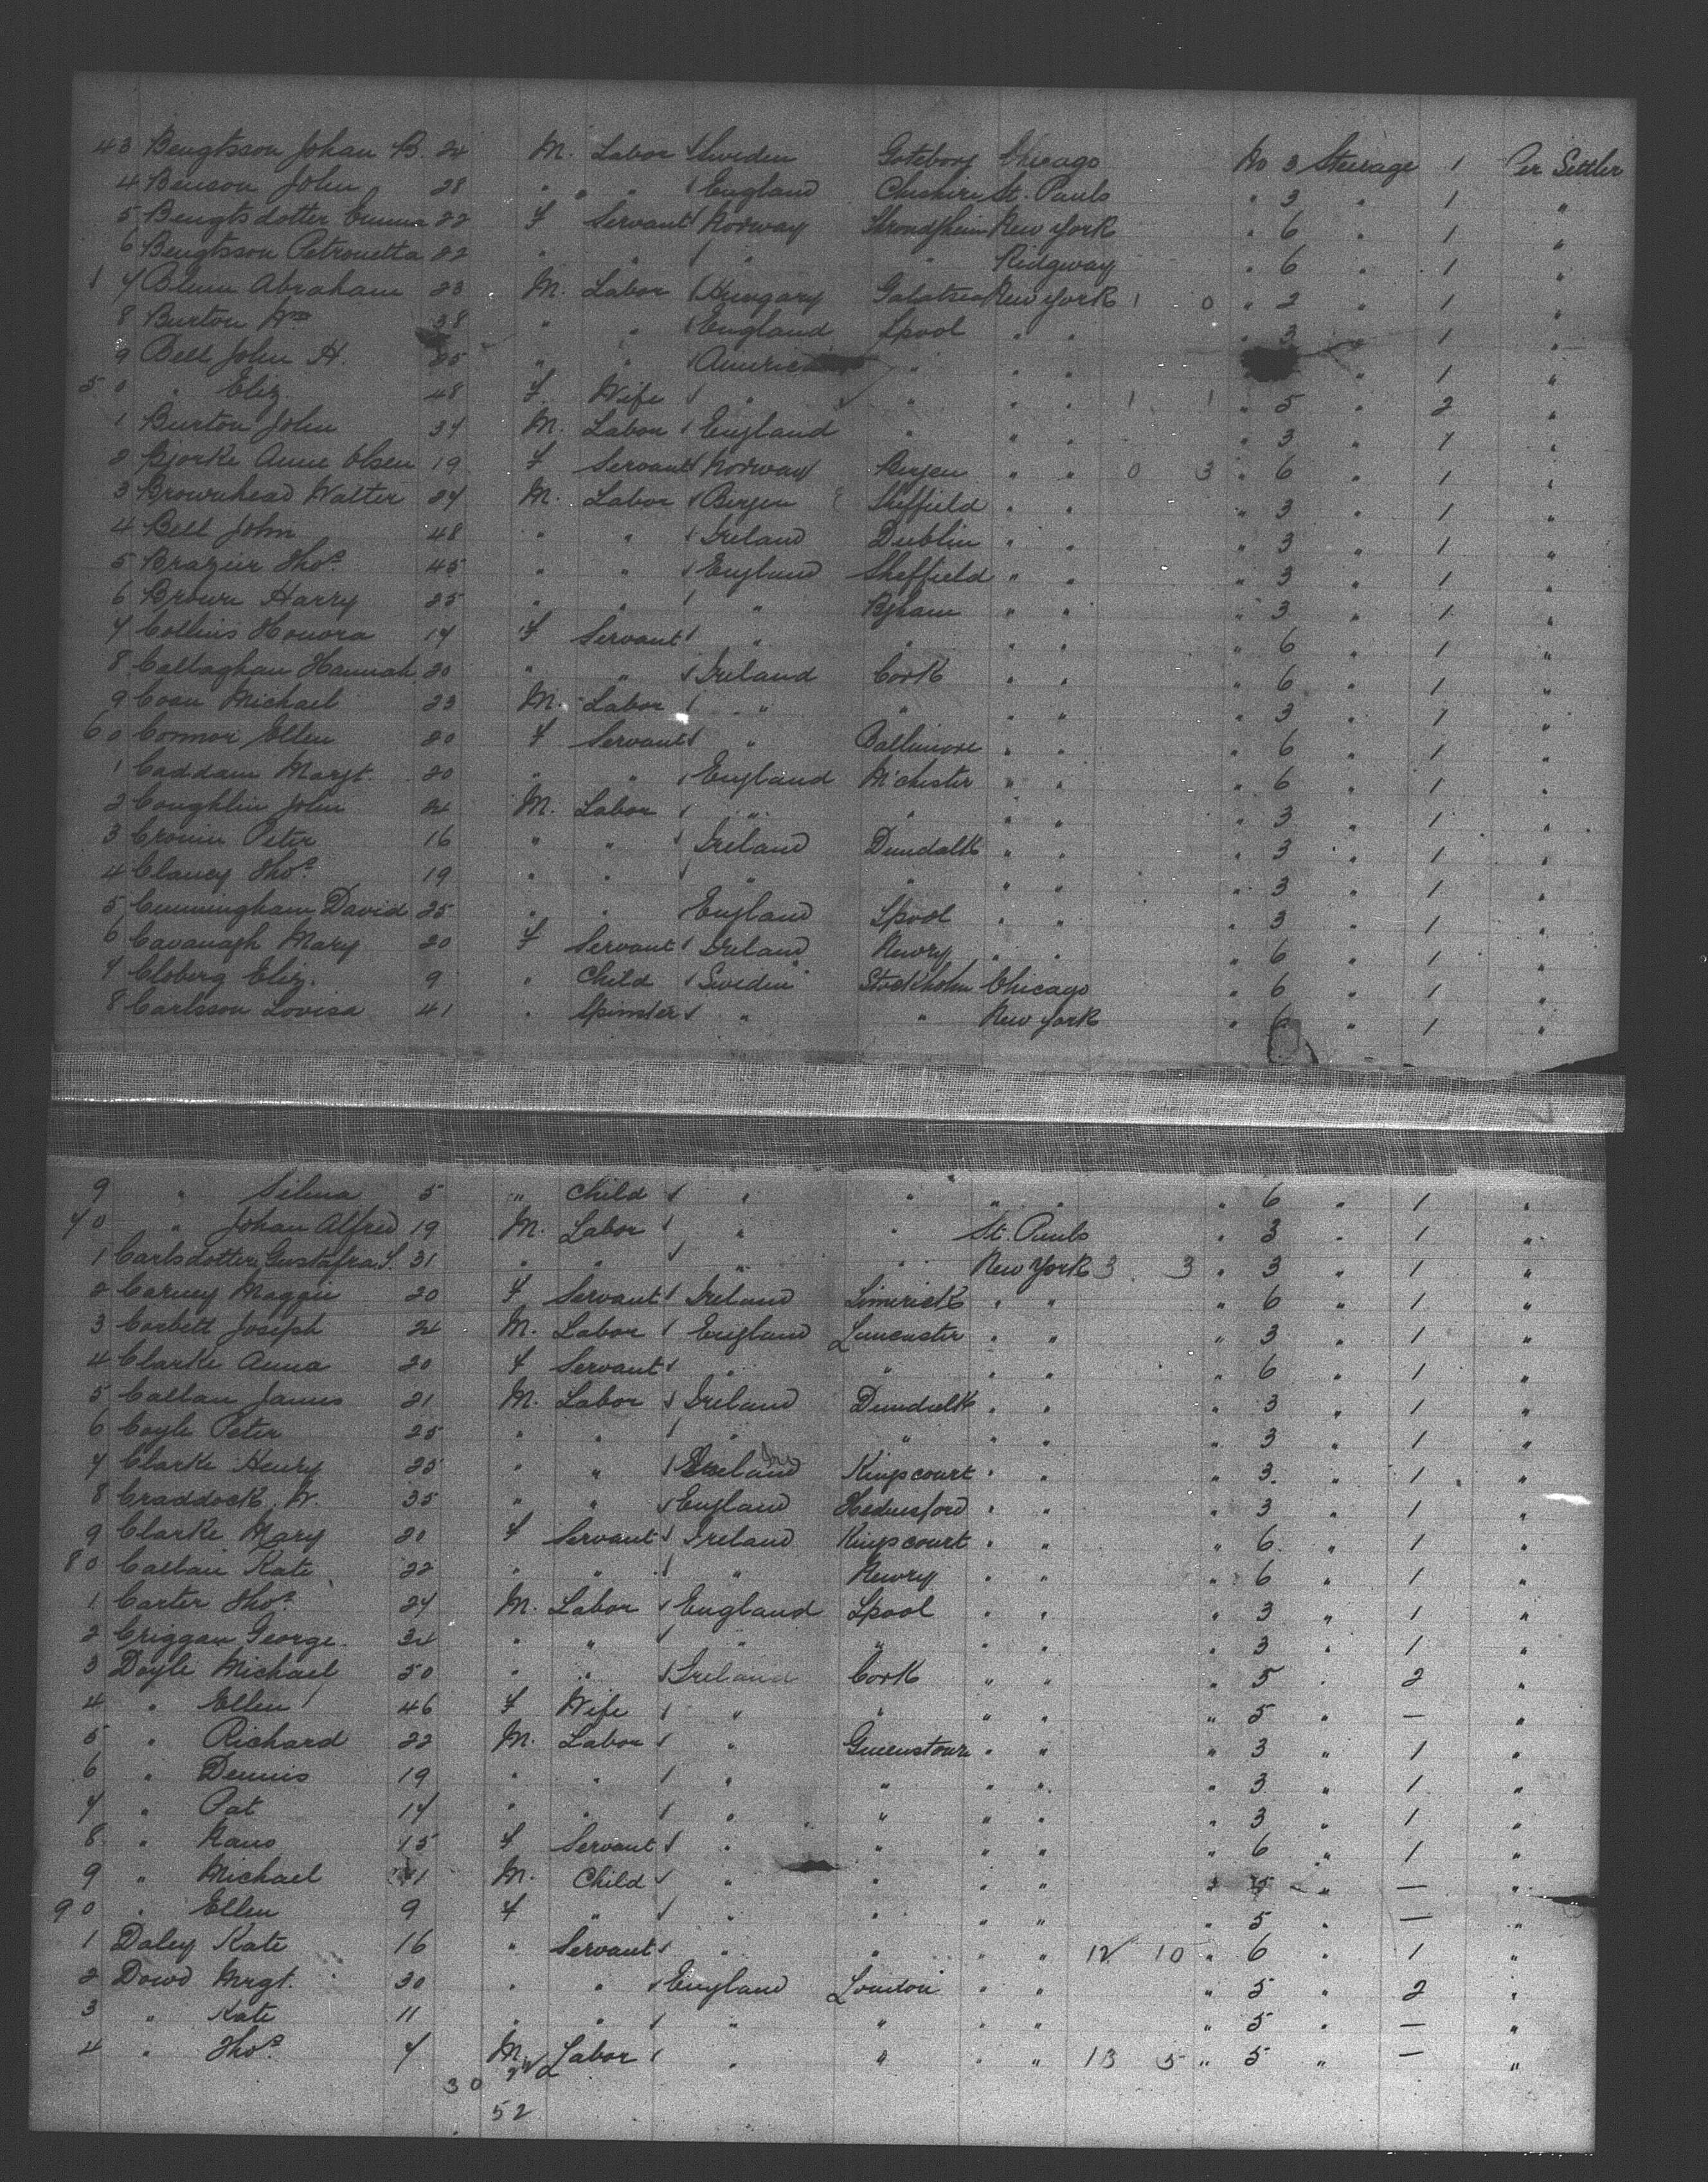 43 Bengtsson Johan B. 24 M. Labor Sweden Goteborg Chicago No 3 Steerage 1 Per Settler
4 Benson John 28 " " " England Cheshire St. Pauls " 3 " 1 "
5 Bengtsdotter Emma 22 F Servant Norway Throndhein New York " 6 " 1 "
6 Bengtsson Petronetta 22 " " " " Ridgway " 6 " 1 "
7 Blum Abraham 23 M. Labor Hungary New York 1 0 " 2 " 1 "
8 Burton Wm 38 " " England Lpool " " " 3 " 1 "
9 Bell John H. 25 " " America " " " " 1 "
50 " Eliz. 48 F. Wife " " " " 1 1 " 5 " 2 "
1 Burton John 34 M. Labor England " " " " 3 " 1 "
2 Bjorke Anne Olsen 19 F Servant Norway Bergen " " 0 3 " 6 " 1 "
3 Brownhead Walter 27 M. Labor Bergen Sheffield " " " 3 " 1 "
4 Bell John 48 " " Ireland Dublin " " " 3 " 1 "
5 Brazier Thos. 45 " " England Sheffield " " " 3 " 1 "
6 Brown Harry 25 " " " Bgham " " " 3 " 1 "
7 Collins Honora 17 F Servant " " " " " 6 " 1 "
8 Callaghan Hannah 20 " " Ireland Cork " " " 6 " 1 "
9 Coan Michael 23 M. Labor " " " " " 3 " 1 "
60 Connor Ellen 20 F Servant " Ballimore " " " 6 " 1 "
1 Caddam Margt. 20 " " England M'chester " " " 6 " 1 "
2 Coughlin John 24 M. Labor " " " " " 3 " 1 "
3 Cronin Peter 16 " " Ireland Dundalk " " " 3 " 1 "
4 Clancy Thos. 19 " " " " " " " 3 " 1 "
5 Cunningham David 25 " " England Lpool " " " 3 " 1 "
6 Cavanagh Mary 20 F Servant Ireland Newry " " " 6 " 1 "
7 Cloberg Eliz. 9 " Child Sweden Stockholm Chicago " 6 " 1 "
8 Carlsson Lovisa 41 " Spinster " " New York " 6 " 1 "
9 " Selma 5 " Child " " " " " 6 " 1 "
70 " Johan Alfred 19 M. Labor " " St. Pauls " 3 " 1 "
1 Carlsdotter Gustafra S. 31 " " " " New York 3 3 " 3 " 1 "
2 Carney Maggie 20 F Servant Ireland Limerick " " " 6 " 1 "
3 Corbett Joseph 24 M. Labor England Lancaster " " " 3 " 1 "
4 Clarke Anna 20 F Servant " " " " " 6 " 1 "
5 Callan James 21 M. Labor Ireland Dundalk " " " 3 " 1 "
6 Coyle Peter 25 " " " " " " " 3 " 1 "
7 Clarke Henry 25 " " Ireland Kingscourt " " " 3 " 1 "
8 Craddock W. 35 " " England Hednesford " " " 3 " 1 "
9 Clarke Mary 20 F Servant Ireland Kingscourt " " " 6 " 1 "
80 Callan Kate 22 " " " Newry " " " 6 " 1 "
1 Carter Thos. 27 M. Labor England Lpool " " " 3 " 1 "
2 Criggan George 34 " " " " " " " 3 " 1 "
3 Doyle Michael 50 " " Ireland Cork " " " 5 " 2 "
4 " Ellen 46 F Wife " " " " " 5 " — "
5 " Richard 22 M. Labor " Queenstown " " " 3 " 1 "
6 " Dennis 19 " " " " " " " 3 " 1 "
7 " Pat 17 " " " " " " " 3 " 1 "
8 " Nano 15 F Servant " " " " " 6 " 1 "
9 " Michael 11 M. Child " " " " " 5 " — "
90 " Ellen 9 F " " " " " " 5 " — "
1 Daley Kate 16 " Servant " " " " 12 10 " 6 " 1 "
2 Dowd Mrgt. 30 " " England London " " " 5 " 2 "
3 " Kate 11 " " " " " " " 5 " — "
4 " Thos. 7 M. Labor " " " " 13 5 " 5 " — "
30 22
52